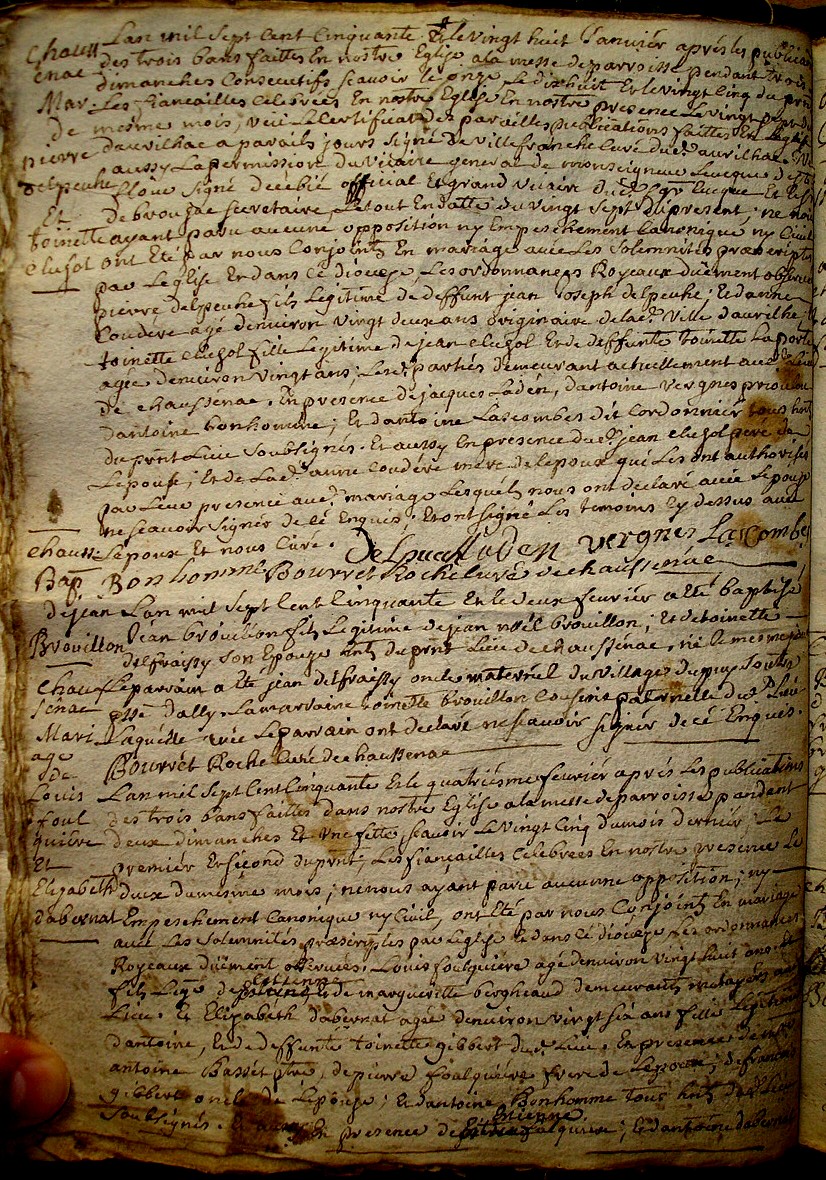 Chauss
enac
Mar.
pierre
delpeuhe
Et
toinette
clusol
Lan mil Sept Cent Cinquante Et le vingt huit Janviér aprés les publica
des trois bans faittes En nostre Eglise ala messe de parroisse pendant trois
dimanches Consecutifs scavoir le onze Le dixhuit Et le vingt cinq du prnt
Les fiancailles Celebrées En nostre Eglise En nostre presence Le vingt
de mesme mois, veu Le Certificat des pareilles publications faittes En Leglise
daurilhac a pareils jours signé de villefranche Curé dud. aurilhac
aussy La permission du vicaire general de monseigneur Leveque de st
flour signé décébié official Et grand vicaire Et
de brouzac secretaire, Le tout En datte du vingt sept du present; ne nous
ayant paru aucune opposition ny Empeschement Canonique ny Civil
ont Eté par nous Conjoints En mariage avec Les Solemnités præscriptes
par Leglise Et dans Ce diocese, Les ordonnances Royeaux düement observées
pierre delpeuhe fils Legitime de deffunt jean Joseph delpeuhe; Et danne
Coudére agé denviron vingt deux ans originaire de lad. Ville daurilhac
toinette clusol fille Legitime de jean clusol Et de deffunte toinette Laporte
agée denviron vingt ans; Lesd. parties demeurant actuellement aud. Lieu
de chaussenac. En presence de jacques Laden, dantoine vergnes
dantoine bonhomme; Et dantoine Lascombes dit Cordonniér tous hnts
du prnt Lieu Soubsignés. Et aussy En presence dud. jean clusol pere de
Lepouse; Et de Lad. anne Coudére mere de lepoux qui Les ont authorisés
par Leur presence aud. mariage Lesquels nous ont declaré avec Lepouse
ne scavoir signér de ce Enquis; Et ont signé Les temoins Cy dessus avec
Lepoux Et nous Curé. Delpeuch Laden vergnes Lascombe
Bonhomme Bourret Roche Curé de chaussenac
chauss:
Bap.
de jean
Brouillon
Lan mil Sept Cent Cinquante Et le deux fevriér a eté baptisé
Jean brouillon fils Legitime de jean noël brouillon; Et de toinette
delfraissy Son Epouze hnts du prnt Lieu de chaussénac, né le mesme jour
Le parrain a Eté jean delfraissy oncle maternel du village du puy Soutro
psse dally. La marraine toinette brouillon Cousine paternelle dud. Lieu
Laquélle avec Le parrain ont declaré ne scavoir signér de cé Enquis.
Bourret Roche Curé de chaussenac
chauss
senac
Mari
age
de
Louis
foul
quiére
Et
Elizabeth
dabernat
Lan mil Sept Cent Cinquante Et le quatriésme fevriér aprés Les publications
des trois bans faittes dans nostre Eglise ala messe de parroisse pendant
deux dimanches Et Une fette, scavoir Le vingt Cinq du mois dernier, Le
premiér Et Second du prnt; Les fiançailles Celebrées En nostre presence Le
deux du mésme mois; ne nous ayant paru aucunne opposition; ny
Empeschement Canonique ny Civil, ont Eté par nous Conjoints En mariage
avec Les Solemnités præscriptes par Leglise Et dans Ce diocese Les ordonnances
Royeaux düement observées. Louis foulquiére agé denviron vingt huit ans
fils Legé. détienne Et de marguerite bergheaud demeurants metayers aud
Lieu. Et Elizabeth dabernat agée denviron vingt six ans fille Legitime
dantoine, Et de deffunte toinette gibbert dud. Lieu. En presence de
antoine Basset ptre, de pierre foulquiére frere de Lepoux; de francois
gibbert oncle de Lepouse; Et dantoine Bonhomme tous hnts dud. Lieu
Soubsignés. Et aussy En presence de Etienne falquiere; Et dantoine dabernat